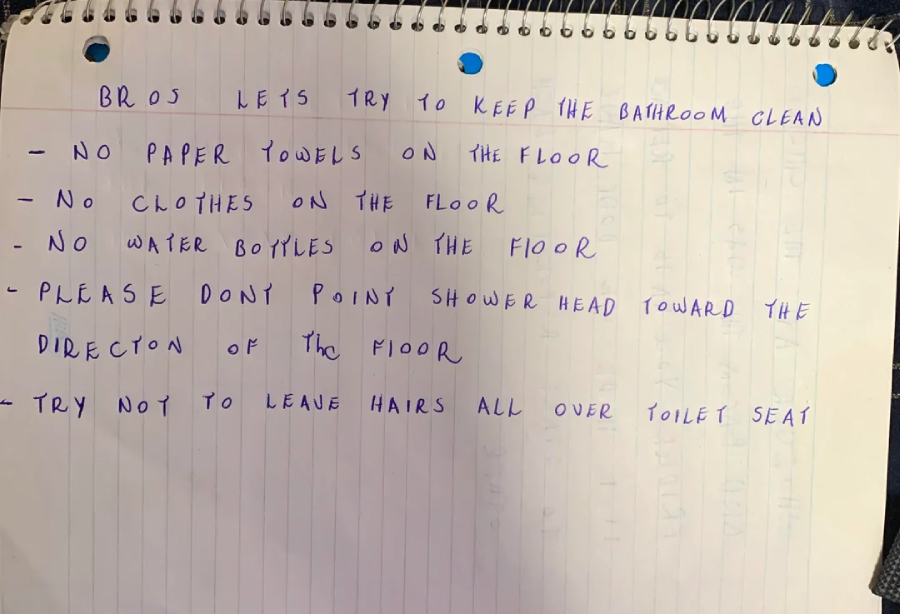 BROS LETS TRY TO KEEP THE BATHROOM CLEAN
- NO PAPER TOWELS ON THE FLOOR
- NO CLOTHES ON THE FLOOR
- NO WATER BOTTLES ON THE FlOOR
- PLEASE DONT POINT SHOWER HEAD TOWARD THE
DIRECTON OF The FlOOR
- TRY NOT TO LEAVE HAIRS ALL OVER TOILET SEAT